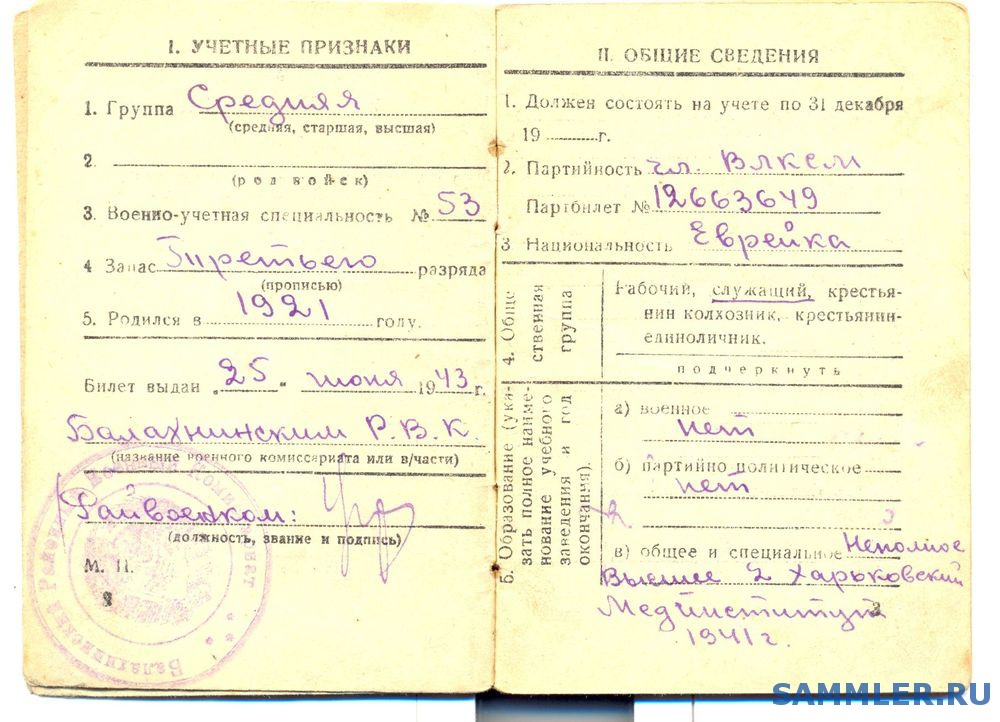 I. УЧЕТНЫЕ ПРИЗНАКИ
1. Группа Средняя
(средняя, старшая, высшая)
2.
(род войск)
3. Военно-учетная специальность № 53
4 Запас Третьего разряда
(прописью)
5. Родился в 1921 году.
Билет выдан „25“ июня 1943 г.
Балахнинским Р.В.К.
(название военного комиссариата или в/части)
Райвоенком:
(должность, звание и подпись)
М. П.
II. ОБЩИЕ СВЕДЕНИЯ
1. Должен состоять на учете по 31 декабря
19 г.
2. Партийность чл. ВЛКСМ
Партбилет № 12663649
3 Национальность Еврейка
4. Обще
ственная
группа
Рабочий, служащий, крестья-
нин колхозник, крестьянин-
единоличник.
подчеркнуть
5. Образование (ука-
зать полное наиме-
нование учебного
заведения и год
окончания).
а) военное
нет
б) партийно политическое
нет
в) общее и специальное Неполное
Высшее 2 Харьковский
Мединститут
1941 г.
SAMMLER.RU